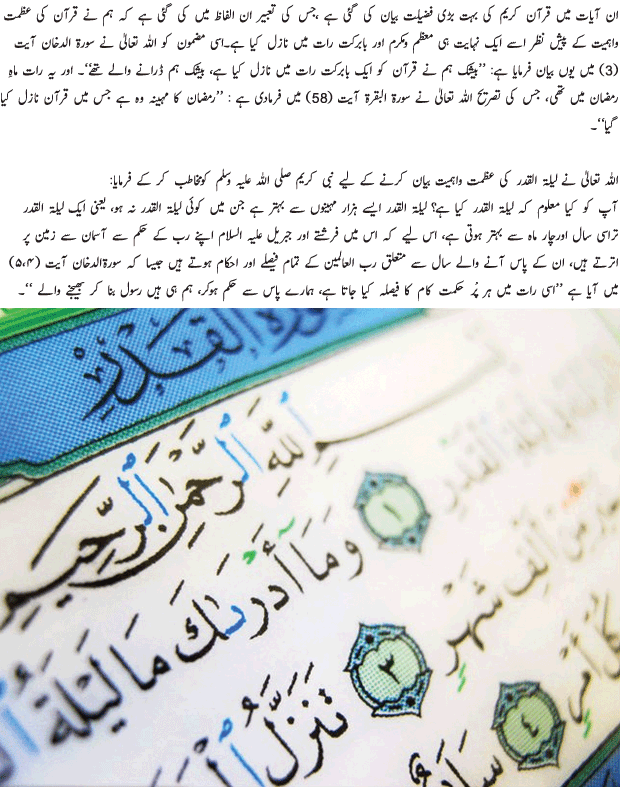 ان آیات میں قرآن کریم کی بہت بڑی فضیلت بیان کی گئی ہے ،جس کی تعبیر ان الفاظ میں کی گئی ہے کہ ہم نے قرآن کی عظمت
واہمیت کے پیش نظر اسے ایک نہایت ہی معظم ومکرم اور بابرکت رات میں نازل کیا ہے۔اسی مضمون کو اللہ تعالیٰ نے سورۃ الدخان آیت
(3) میں یوں بیان فرمایا ہے: ’’بیشک ہم نے قرآن کو ایک بابرکت رات میں نازل کیا ہے، بیشک ہم ڈرانے والے تھے‘‘۔ اور یہ رات ماہِ
رمضان میں تھی، جس کی تصریح اللہ تعالیٰ نے سورۃ البقرۃ آیت (58) میں فرمادی ہے : ’’رمضان کا مہینہ وہ ہے جس میں قرآن نازل کیا
گیا‘‘۔
اللہ تعالیٰ نے لیلۃ القدر کی عظمت واہمیت بیان کرنے کے لیے نبی کریم صلی اللہ علیہ وسلم کومخاطب کر کے فرمایا:
آپ کو کیا معلوم کہ لیلۃ القدر کیا ہے؟ لیلۃ القدر ایسے ہزار مہینوں سے بہتر ہے جن میں کوئی لیلۃ القدر نہ ہو، یعنی ایک لیلۃ القدر
تراسی سال اورچار ماہ سے بہتر ہوتی ہے، اس لیے کہ اس میں فرشتے اور جبریل علیہ السلام اپنے رب کے حکم سے آسمان سے زمین پر
اترتے ہیں، ان کے پاس آنے والے سال سے متعلق رب العالمین کے تمام فیصلے اور احکام ہوتے ہیں جیسا کہ سورۃالدخان آیت (۵،۴)
میں آیا ہے ’’اسی رات میں ہر پُر حکمت کام کا فیصلہ کیا جاتا ہے، ہمارے پاس سے حکم ہوکر، ہم ہی ہیں رسول بنا کر بھیجنے والے ‘‘۔
سورة القدر
بِسْمِ ٱللَّهِ ٱلرَّحْمَٰنِ ٱلرَّحِيمِ
لَيْلَةِ ٱلْقَدْرِ ١ وَمَآ أَدْرَىٰكَ مَا لَيْلَةُ
خَيْرٌ مِّنْ أَلْفِ شَهْرٍ ٣ تَنَزَّلُ
كُلِّ أَمْرٍ ٤